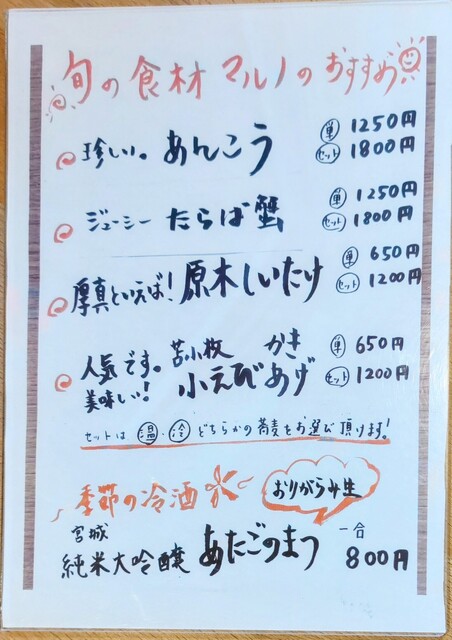 旬の食材 マルノのおすすめ
珍しい。 あんこう 単 1250円
セット 1800円
ジューシー たらば蟹 単 1250円
セット 1800円
厚真といえば! 原木しいたけ 単 650円
セット 1200円
人気です。 苫小牧 かき 単 650円
美味しい! 小えびあげ セット 1200円
セットは 温・冷 どちらかの蕎麦をお選び頂けます!
季節の冷酒 おりがらみ生
宮城
純米大吟醸 あたごのまつ 一合 800円